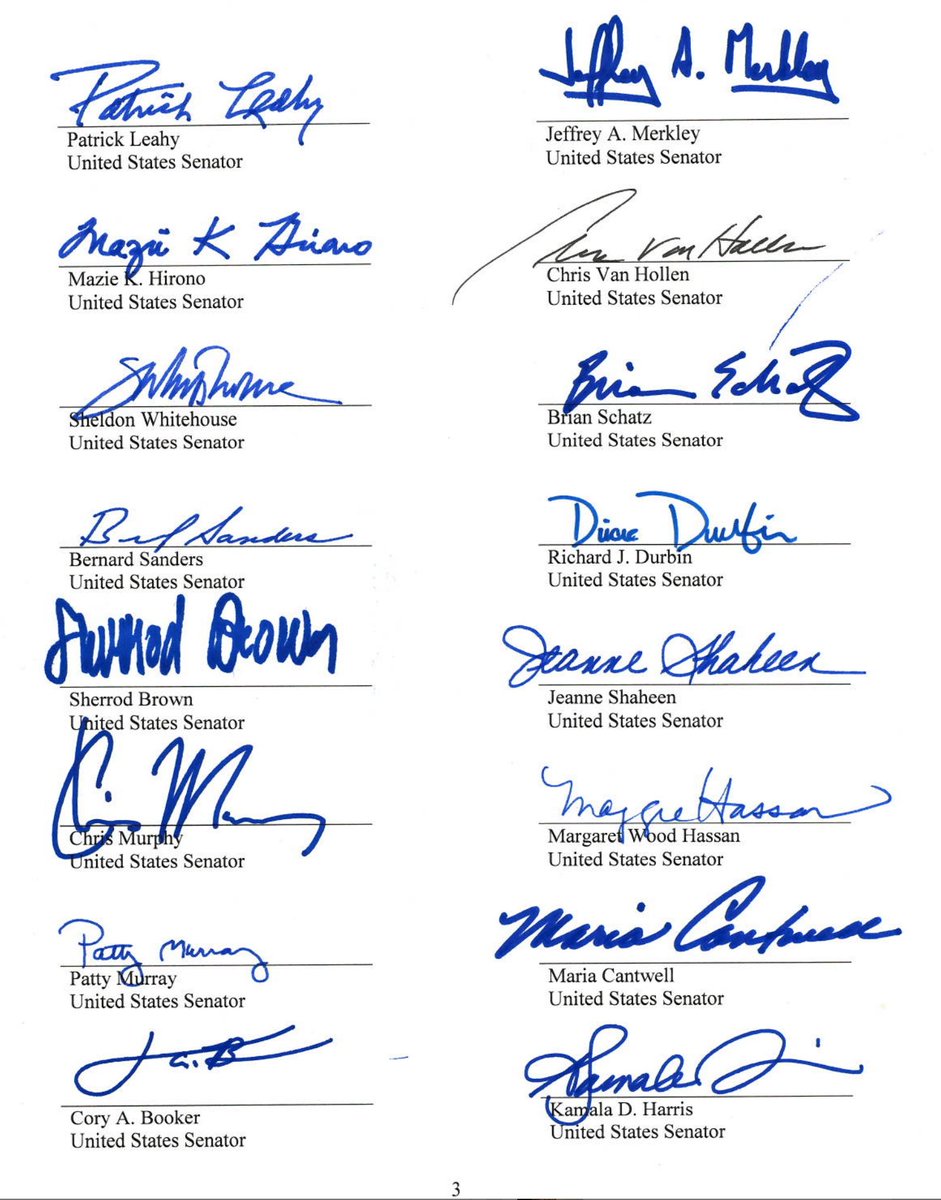 Patrick Leahy
Patrick Leahy
United States Senator
Jeffrey A. Merkley
Jeffrey A. Merkley
United States Senator
Mazie K Hirono
Mazie K. Hirono
United States Senator
Chris Van Hollen
Chris Van Hollen
United States Senator
SWhitehouse
Sheldon Whitehouse
United States Senator
Brian Schatz
Brian Schatz
United States Senator
Sanders
Bernard Sanders
United States Senator
Durbin
Richard J. Durbin
United States Senator
Sherrod Brown
Sherrod Brown
United States Senator
Jeanne Shaheen
Jeanne Shaheen
United States Senator
Chris Murphy
United States Senator
Maggie Hassan
Margaret Wood Hassan
United States Senator
Patty Murray
Patty Murray
United States Senator
Maria Cantwell
Maria Cantwell
United States Senator
Cory A. Booker
United States Senator
Kamala
Kamala D. Harris
United States Senator
3